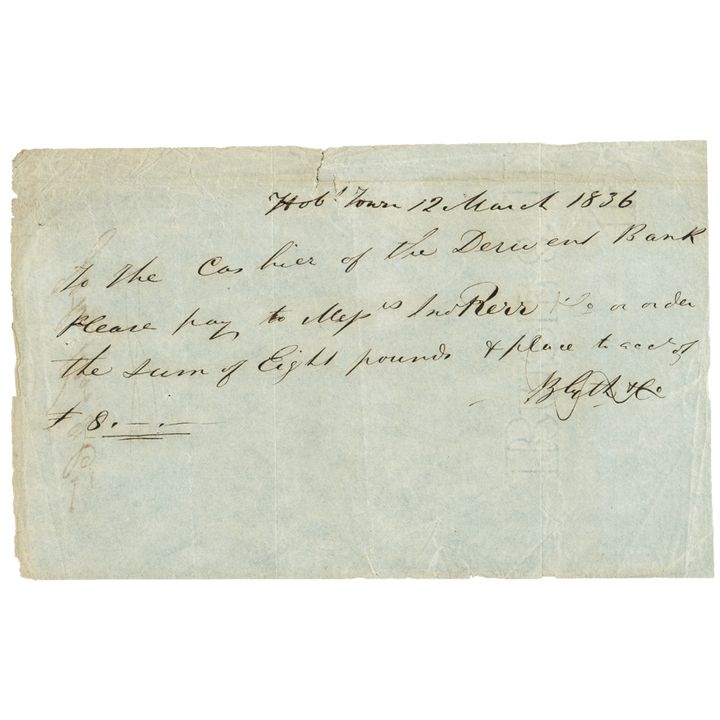 Hobt Town 12 March 1836
To the Cashier of the Derwent Bank
Please pay to Messrs Jno Kerr & Co or order
the sum of Eight pounds & place to acct of
Blyth & Co
£ 8.—.—